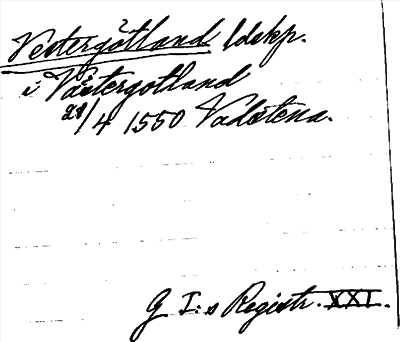 Vestergötland ldskp.
i Västergötland
28/4 1550 Vadstena.
G I:s Registr. XXI.